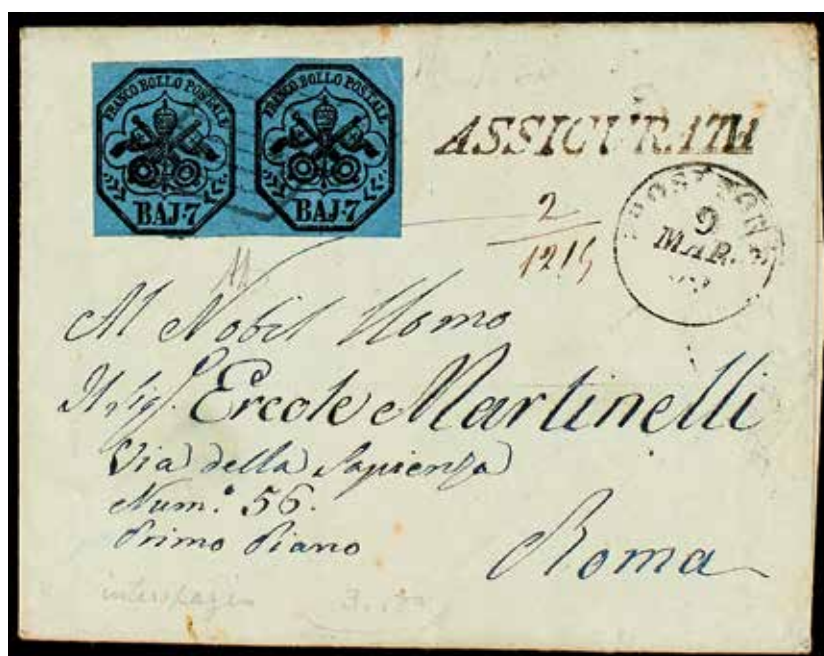 FRANCO BOLLO POSTALE
BAJ:7
FRANCO BOLLO POSTALE
BAJ:7
ASSICURATA
9
MAR.
2
1215
Al Nobil Uomo
Il Sig. Ercole Martinelli
Via della Sapienza
Num.º 56.
Primo Piano
Roma